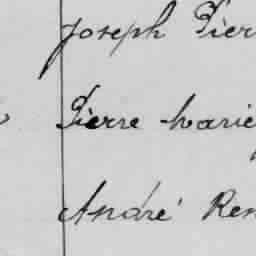 Joseph Pier
Pierre Marie
André Ren